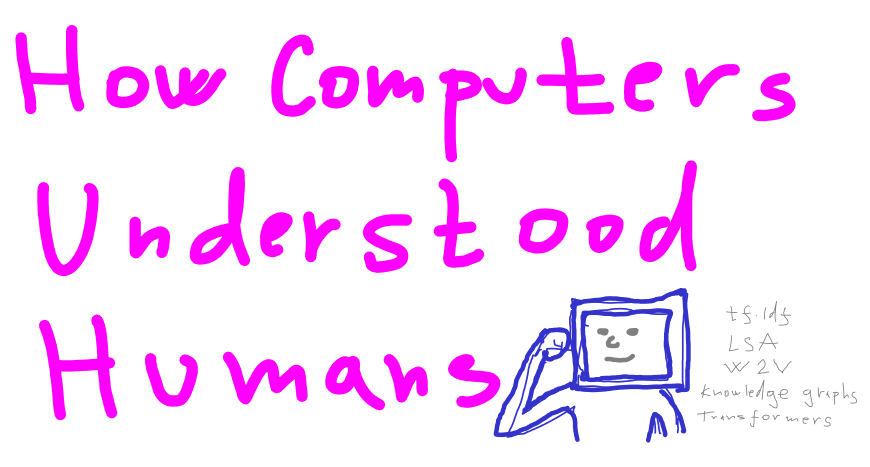 How Computers
Understood
Humans
tf.idf
LSA
W2V
Knowledge graphs
Transformers